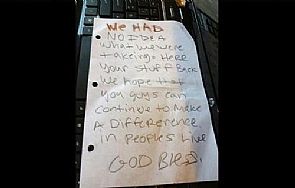 We HAD
NO IDEA
what we were
takeing. Here
Your Stuff Back
We hope that
you guys can
continue to make
A Difference
in peoples Live
GOD Bless.